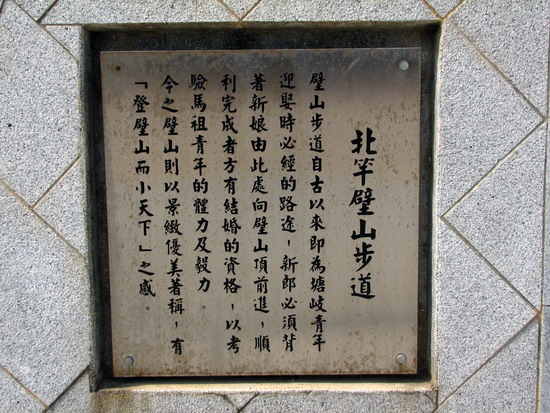 北竿壁山步道
壁山步道自古以來即為塘岐青年
迎娶時必經的路途，新郎必須背
著新娘由此處向壁山頂前進，順
利完成者方有結婚的資格，以考
驗馬祖青年的體力及毅力。
今之壁山則以景緻優美著稱，有
「登壁山而小天下」之感。